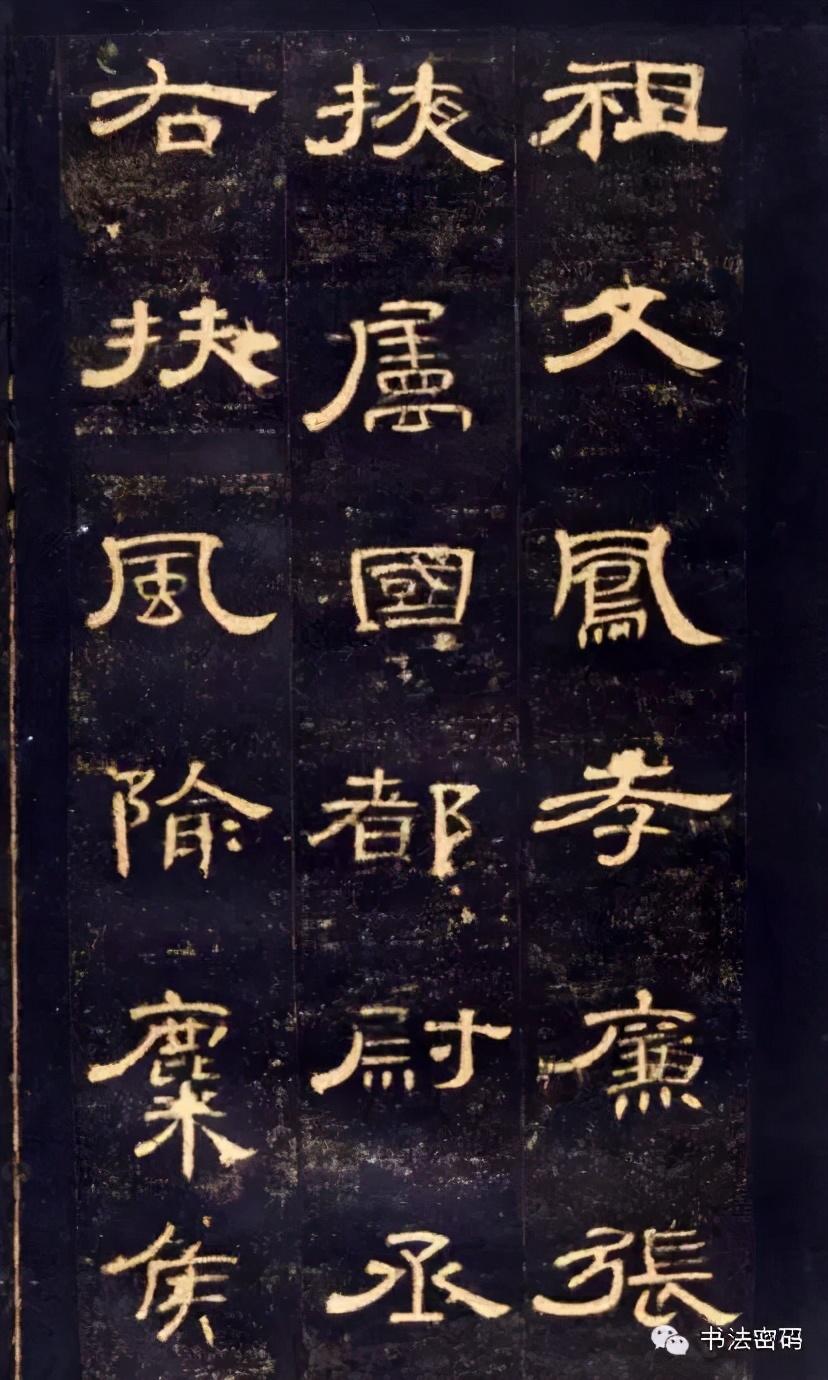 祖父鳳孝廉張
掖屬國都尉丞
右扶風隃麋侯
书法密码